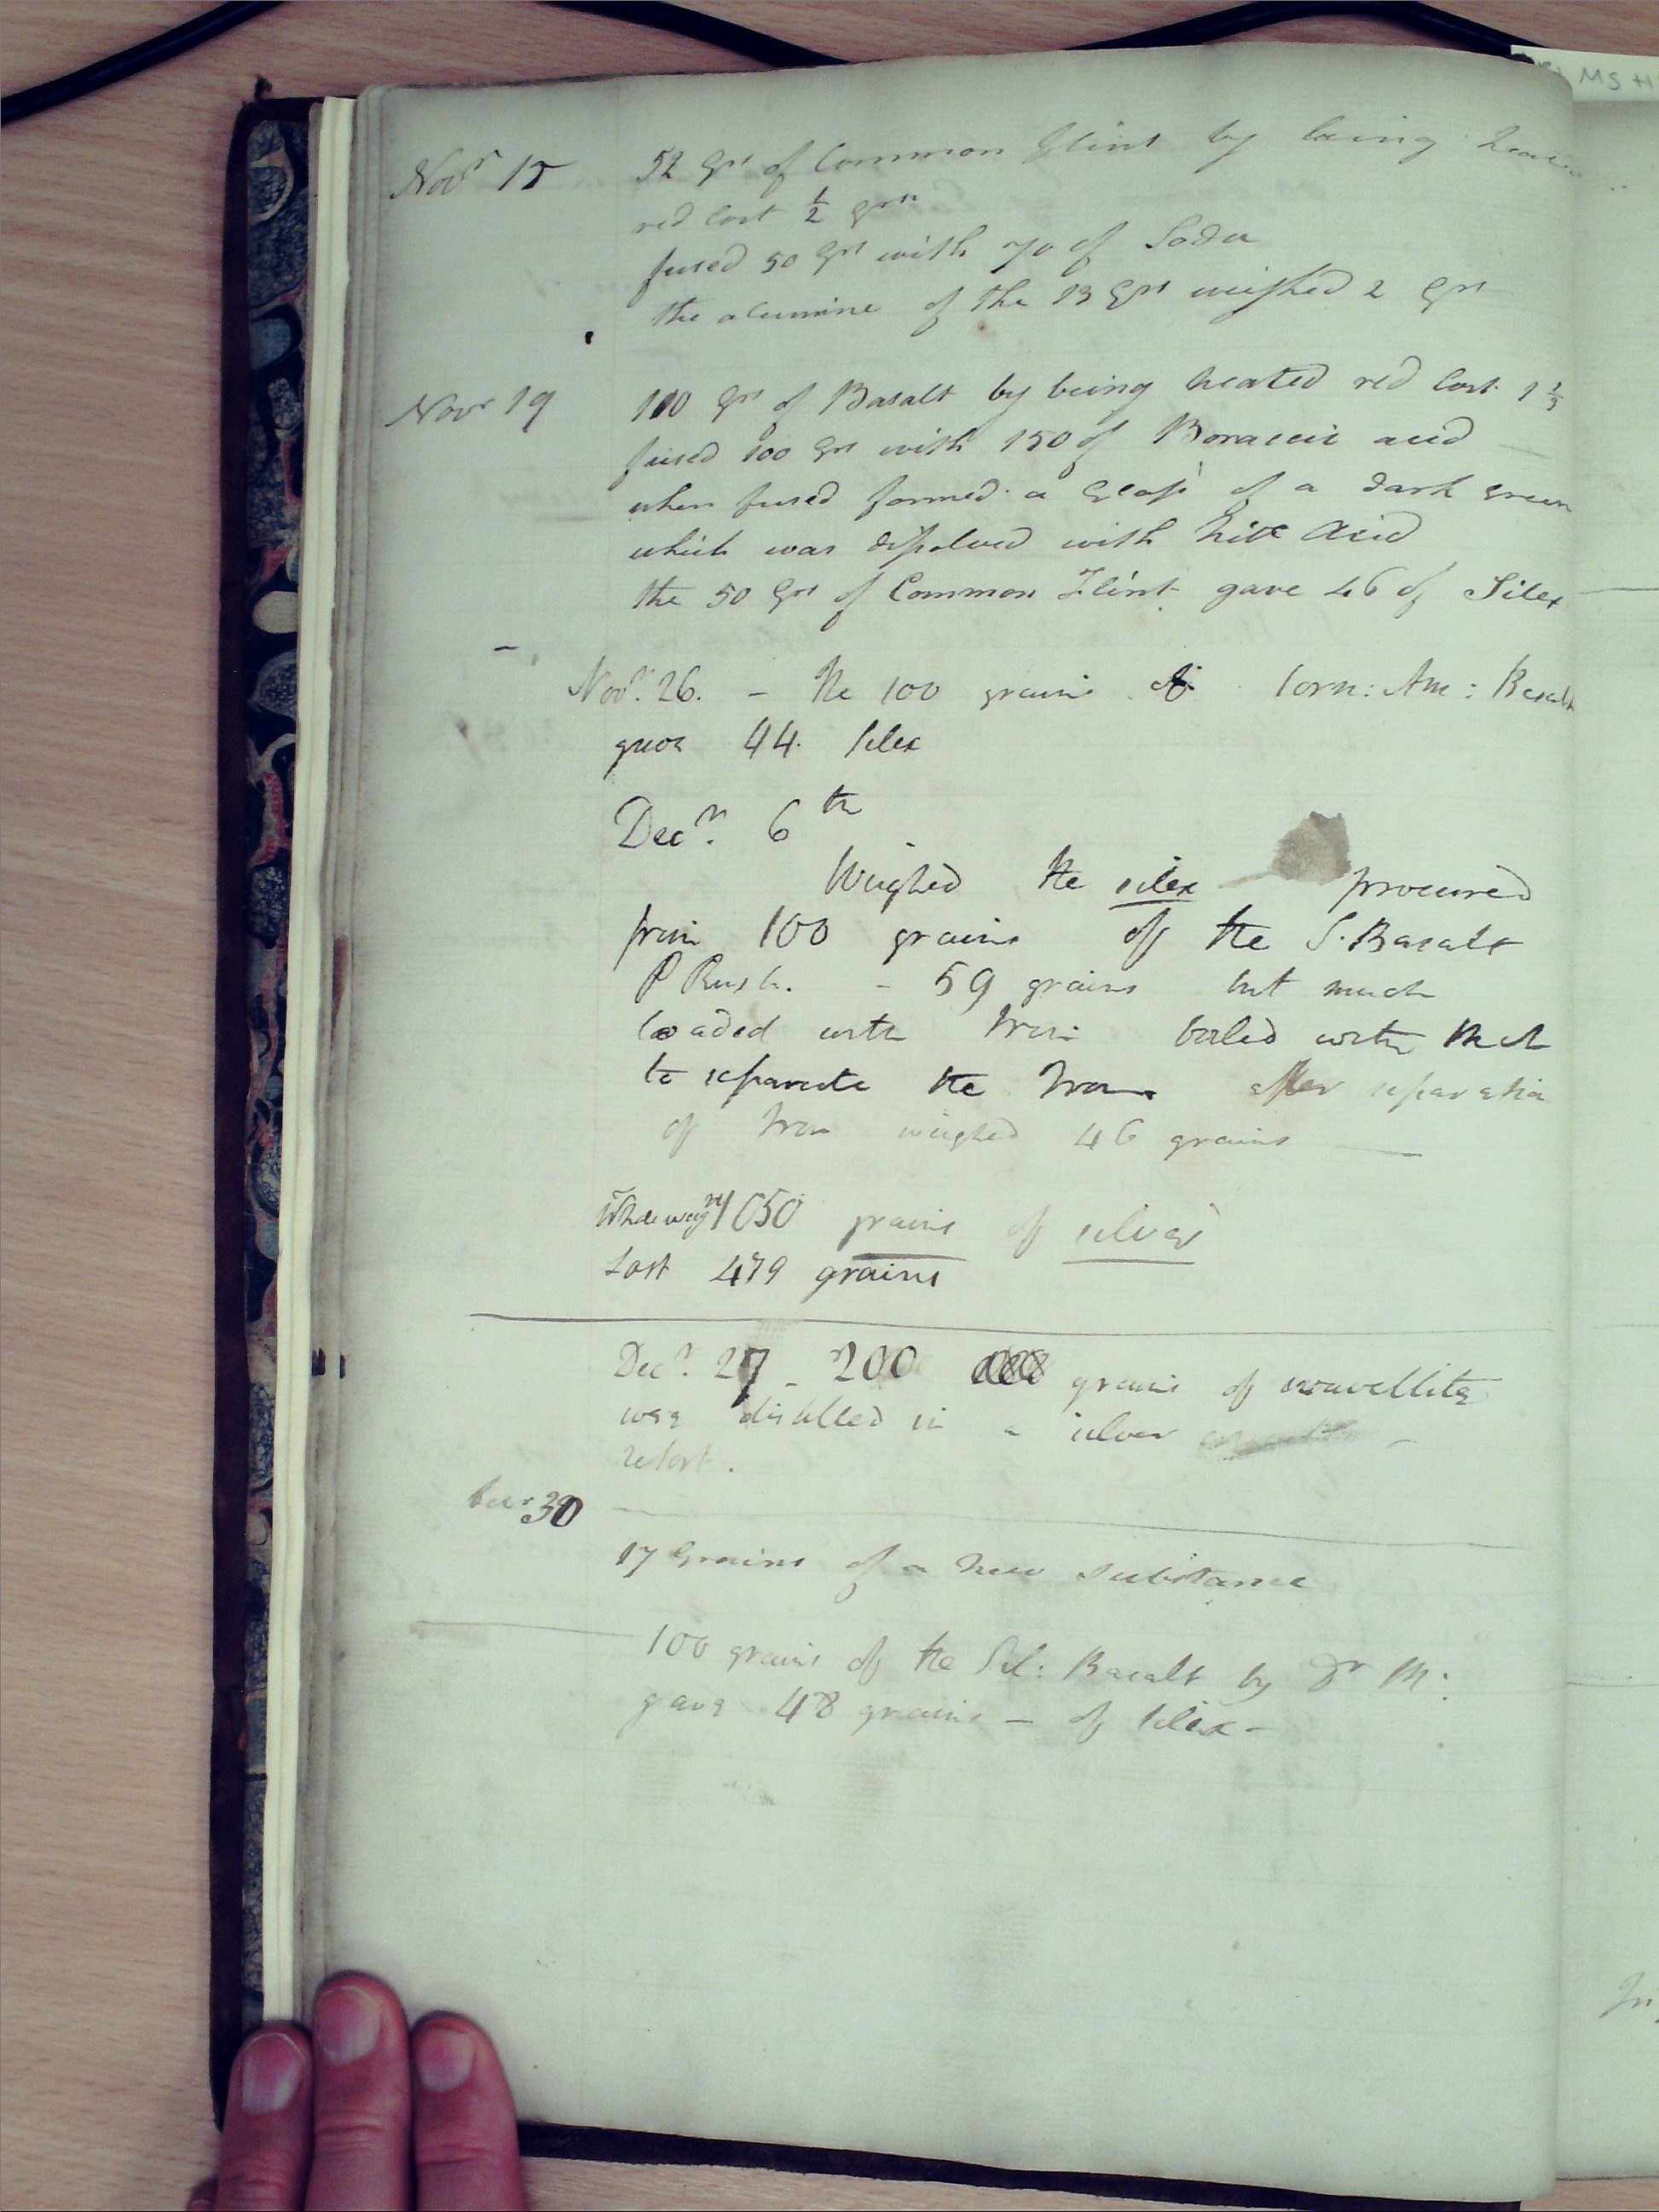 MS H
Novr 15 52 Grs of Common flint by being
red lost ½ grn
fused 50 Grs with 70 of Soda
the alumine of the 13 Grs weighed 2 Grs
Novr 19 110 Grs of Basalt by being heated red lost 1
fused 100 Grs with 150 of Boracic acid
when fused formed a Glass of a dark Green
which was dissolved with Acid
the 50 Grs of Common Flint gave 46 of Silex
Novr. 26. – The 100 grains of Corn: Am: Basalt
gave 44. silex
Decr. 6th
Weighed the silex procured
from 100 grains of the S. Basalt
– 59 grains but much
loaded with Iron boiled with
to separate the Iron after separation
of Iron weighed 46 grains
1050 grains of silver
Lost 479 grains
Decr. 27 – 200 grains of wavellite
were distilled in a silver
retort.
Decr 30
17 Grains of a new substance
100 grains of the Basalt by Dr M:
gave 48 grains – of silex –